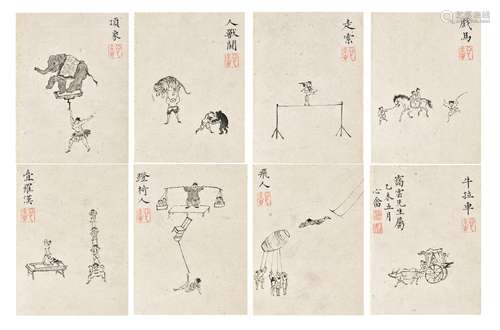 頂象
人獸鬪
走索
戲馬
疊羅漢
蹬椅人
飛人
牛拉車
先生屬
乙未五月
心畬